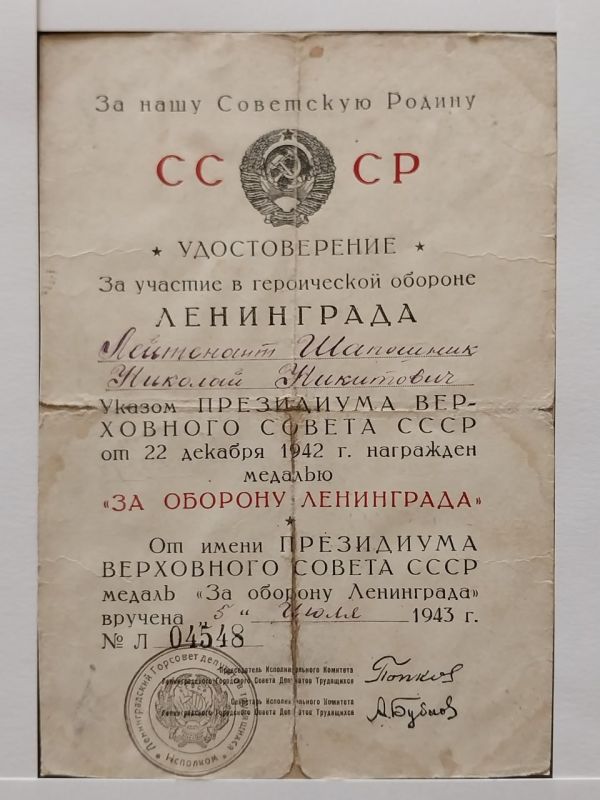 За нашу Советскую Родину
СССР
★ УДОСТОВЕРЕНИЕ ★
За участие в героической обороне
ЛЕНИНГРАДА
Лейтенант Шапошник
Николай Никитович
Указом ПРЕЗИДИУМА ВЕР-
ХОВНОГО СОВЕТА СССР
от 22 декабря 1942 г. награжден
медалью
«ЗА ОБОРОНУ ЛЕНИНГРАДА»
★
От имени ПРЕЗИДИУМА
ВЕРХОВНОГО СОВЕТА СССР
медаль «За оборону Ленинграда»
вручена „5" Июля 1943 г.
№ Л 04548
Председатель Исполнительного Комитета
Ленинградского Городского Совета Депутатов Трудящихся
Попков
Секретарь Исполнительного Комитета
Ленинградского Городского Совета Депутатов Трудящихся
А.Бубнов
Ленинградский Горсовет депутатов трудящихся
★ Исполком ★